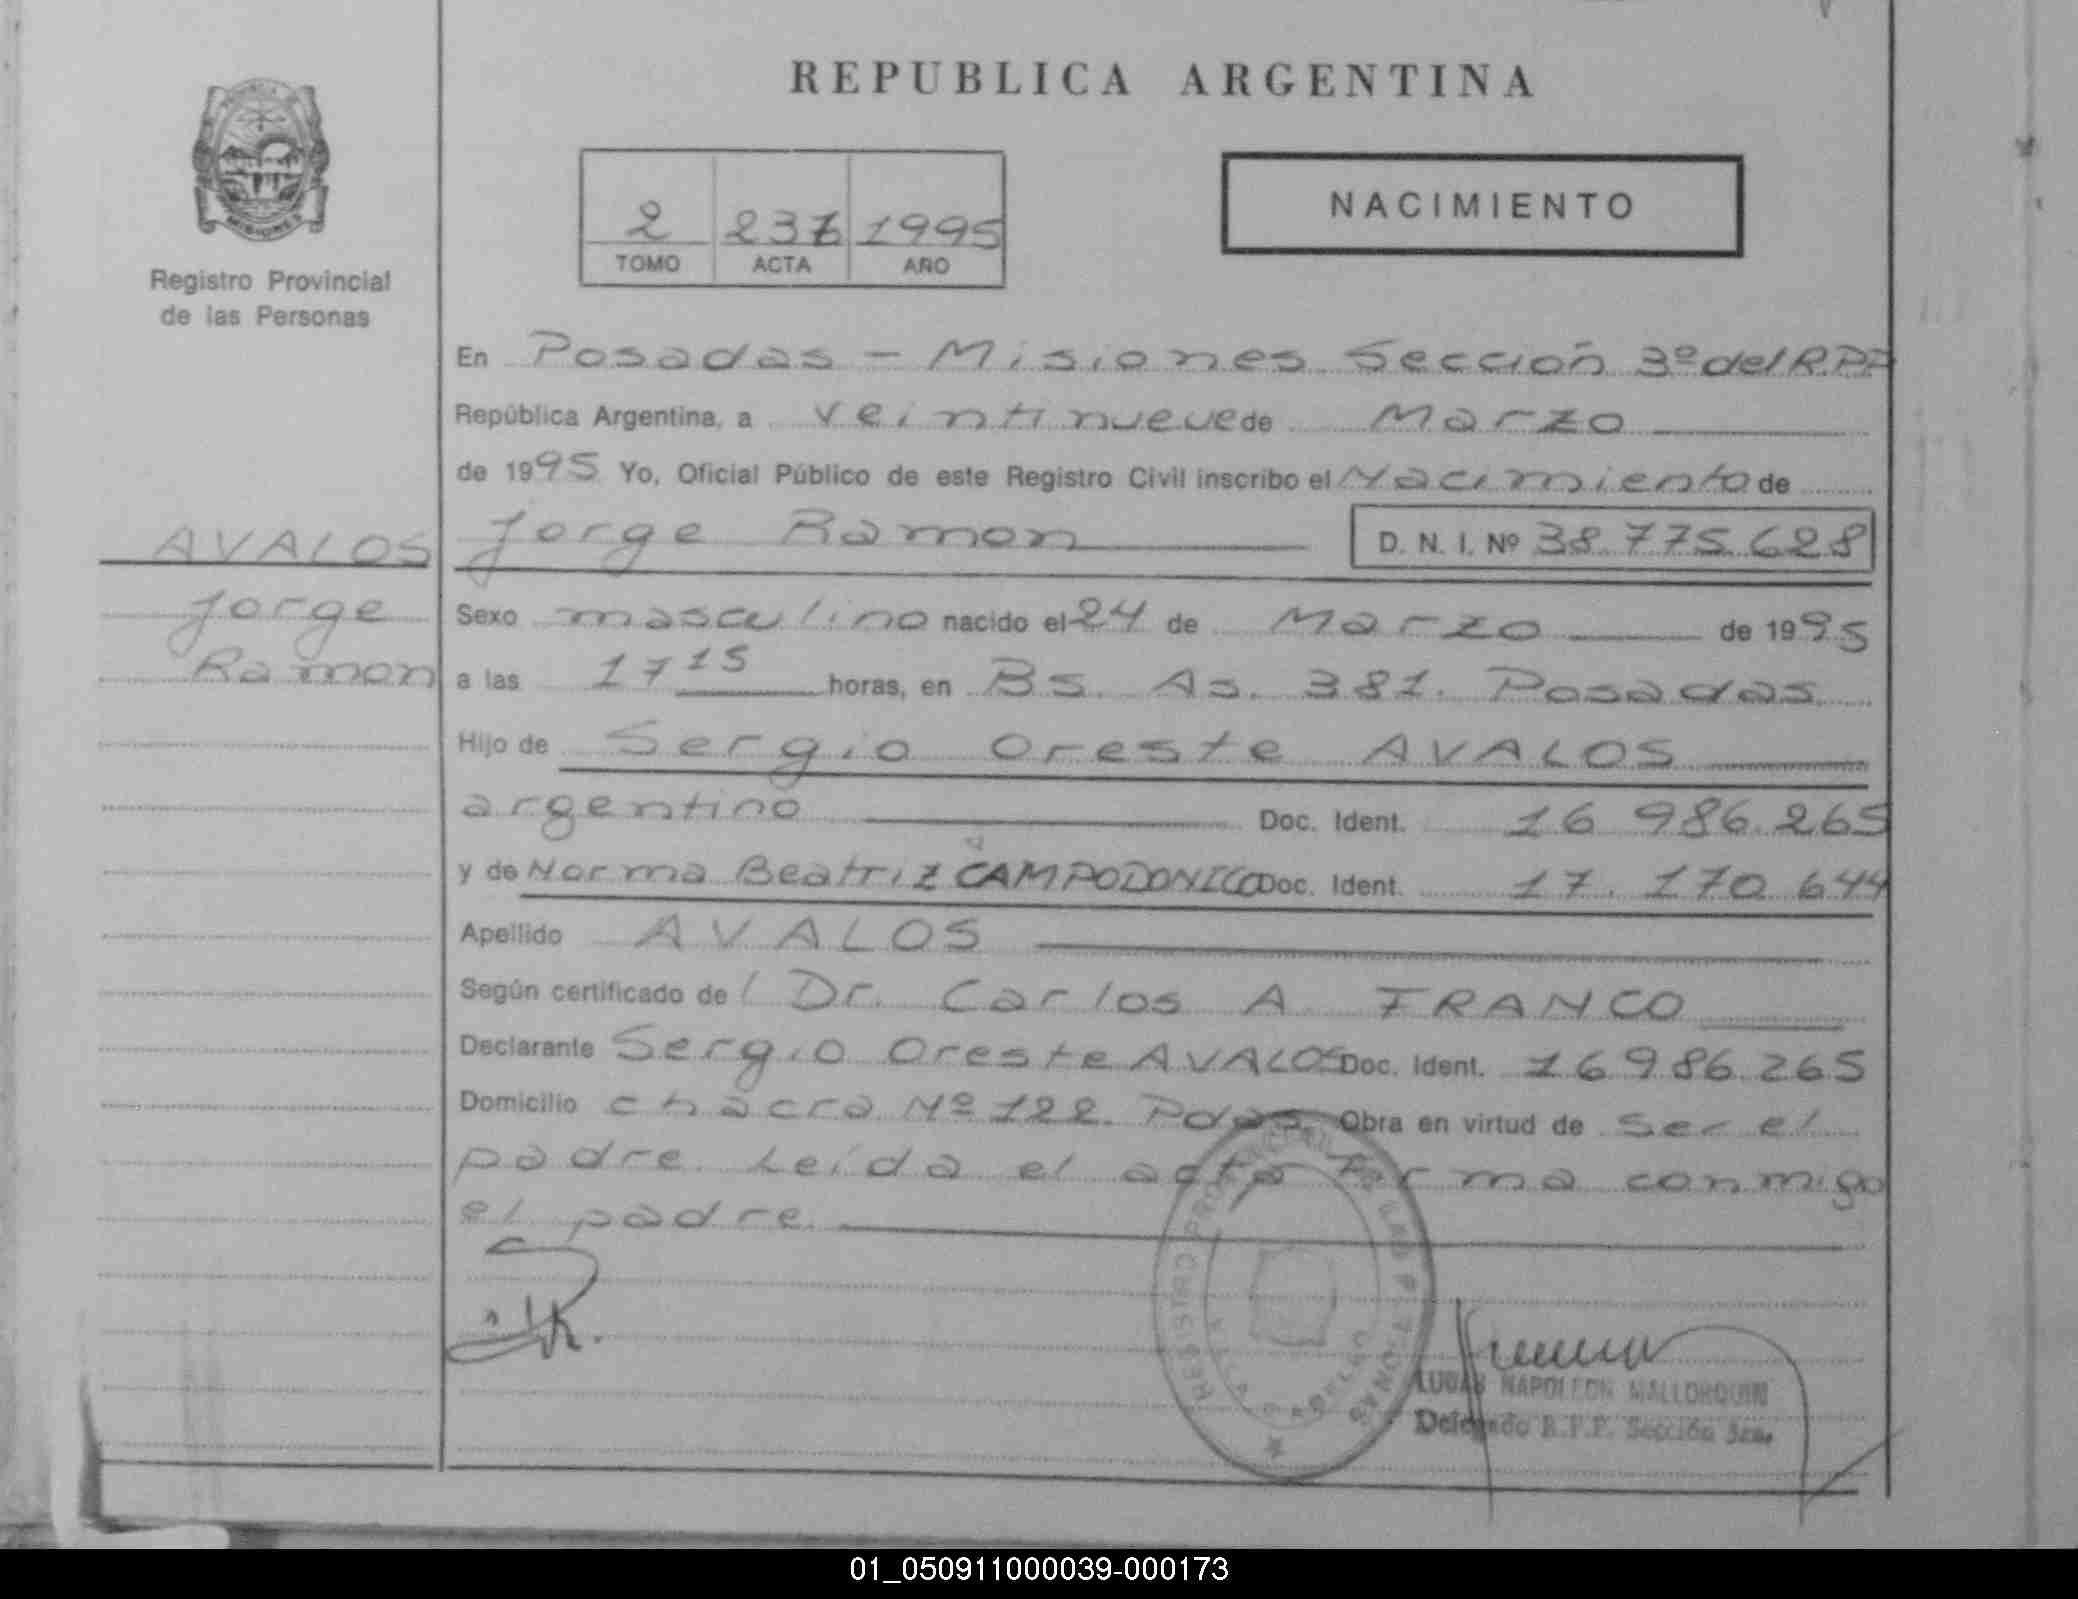 REPUBLICA ARGENTINA
MISIONES
Registro Provincial
de las Personas
2 1995
TOMO ACTA AÑO
NACIMIENTO
En Posadas - Misiones Sección 3º del R.P.P
República Argentina, a veintinueve de Marzo
de 1995 Yo, Oficial Público de este Registro Civil inscribo el Nacimiento de
AVALOS
Jorge
Ramon
Jorge Ramon D. N. I. Nº 38.775.628
Sexo masculino nacido el 24 de Marzo de 1995
a las 17 15 horas, en Bs. As. 381. Posadas
Hijo de Sergio Oreste AVALOS
argentino Doc. Ident. 16 986.265
y de Norma Beatriz CAMPODONICO Doc. Ident. 17.170.644
Apellido AVALOS
Según certificado del Dr. Carlos A FRANCO
Declarante Sergio Oreste AVALOS Doc. Ident. 16.986.265
Domicilio chacra Nº 122. Pdas. Obra en virtud de ser el
padre. Leída el acta firma conmigo
el padre.
REGISTRO
LUCAS NAPOLEON MALLORQUIN
Delegado R.P.P. Sección 3ra.
01_050911000039-000173